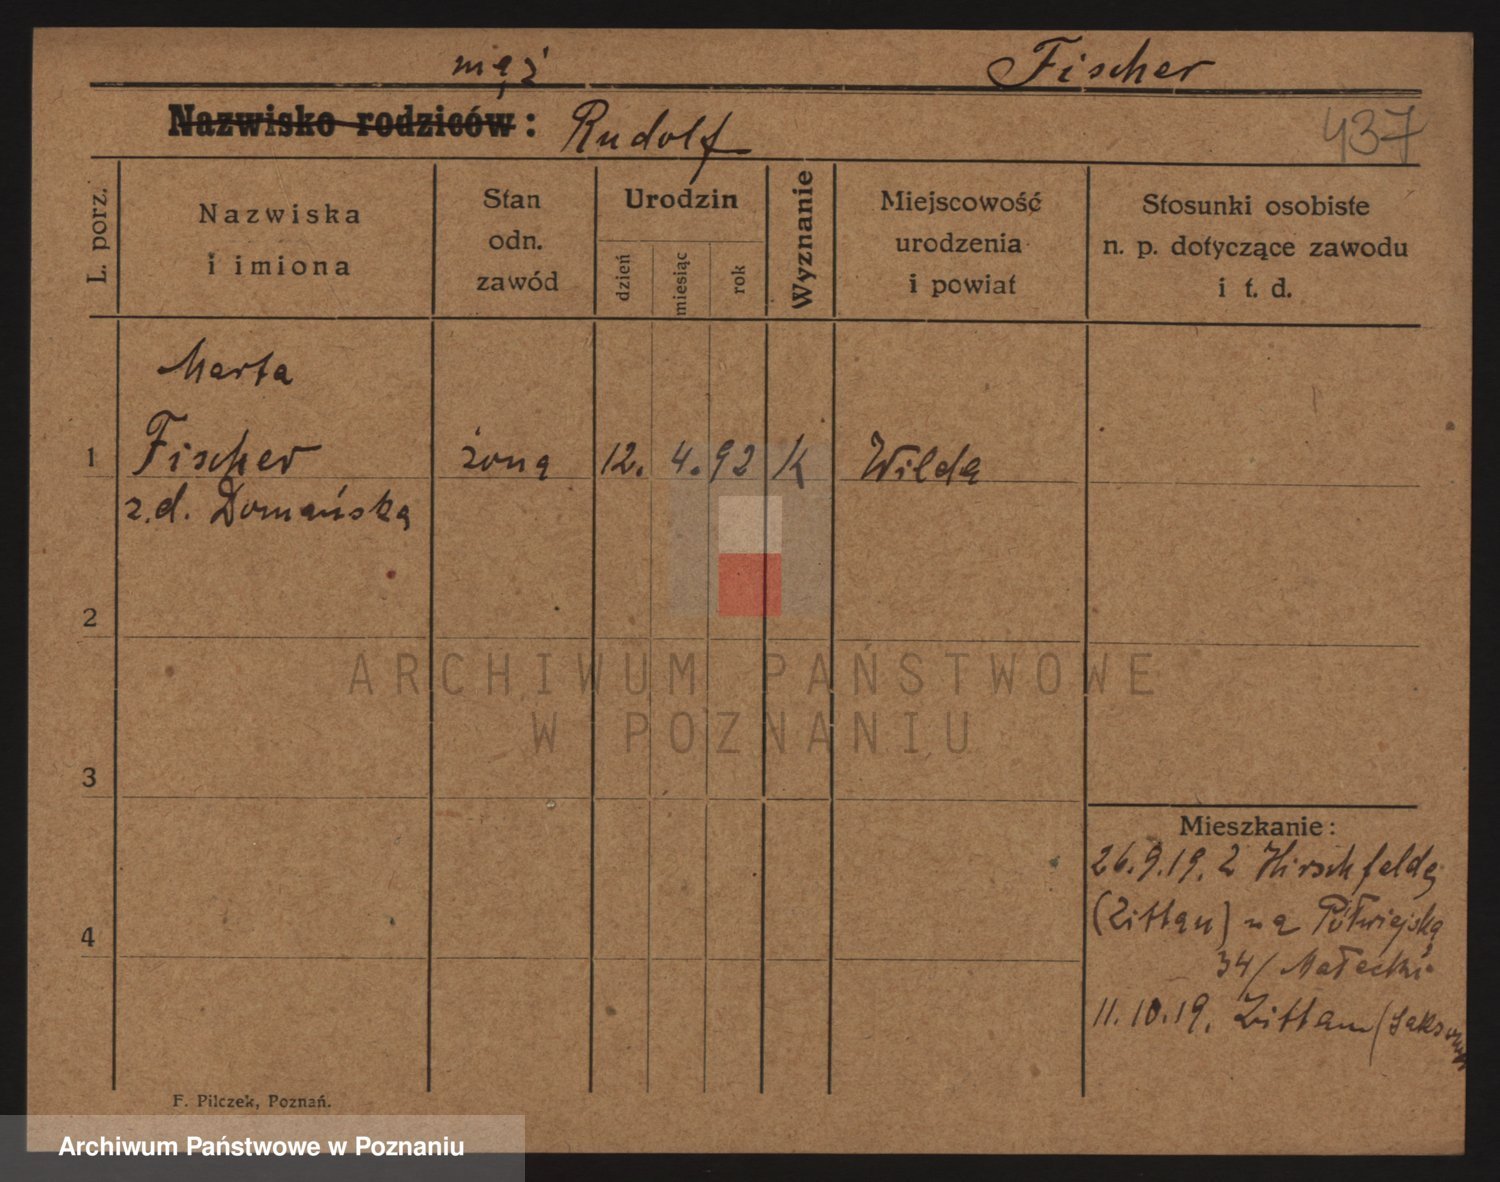 mąż
Fischer
Nazwisko rodziców: Rudolf
437
L. porz.
Nazwiska
i imiona
Stan
odn.
zawód
Urodzin
dzień
miesiąc
rok
Wyznanie
Miejscowość
urodzenia
i powiat
Stosunki osobiste
n. p. dotyczące zawodu
i t. d.
Marta
1 Fischer żona 12. 4. 92 K Wilda
z.d. Domańska
2
3
4
ARCHIWUM PAŃSTWOWE
W POZNANIU
Mieszkanie:
26.9.19. z Hirschfelde
(Zittau) na Półwiejską
34/ Małecki
11.10.19. Zittau (Saksonia
F. Pilczek, Poznań.
Archiwum Państwowe w Poznaniu